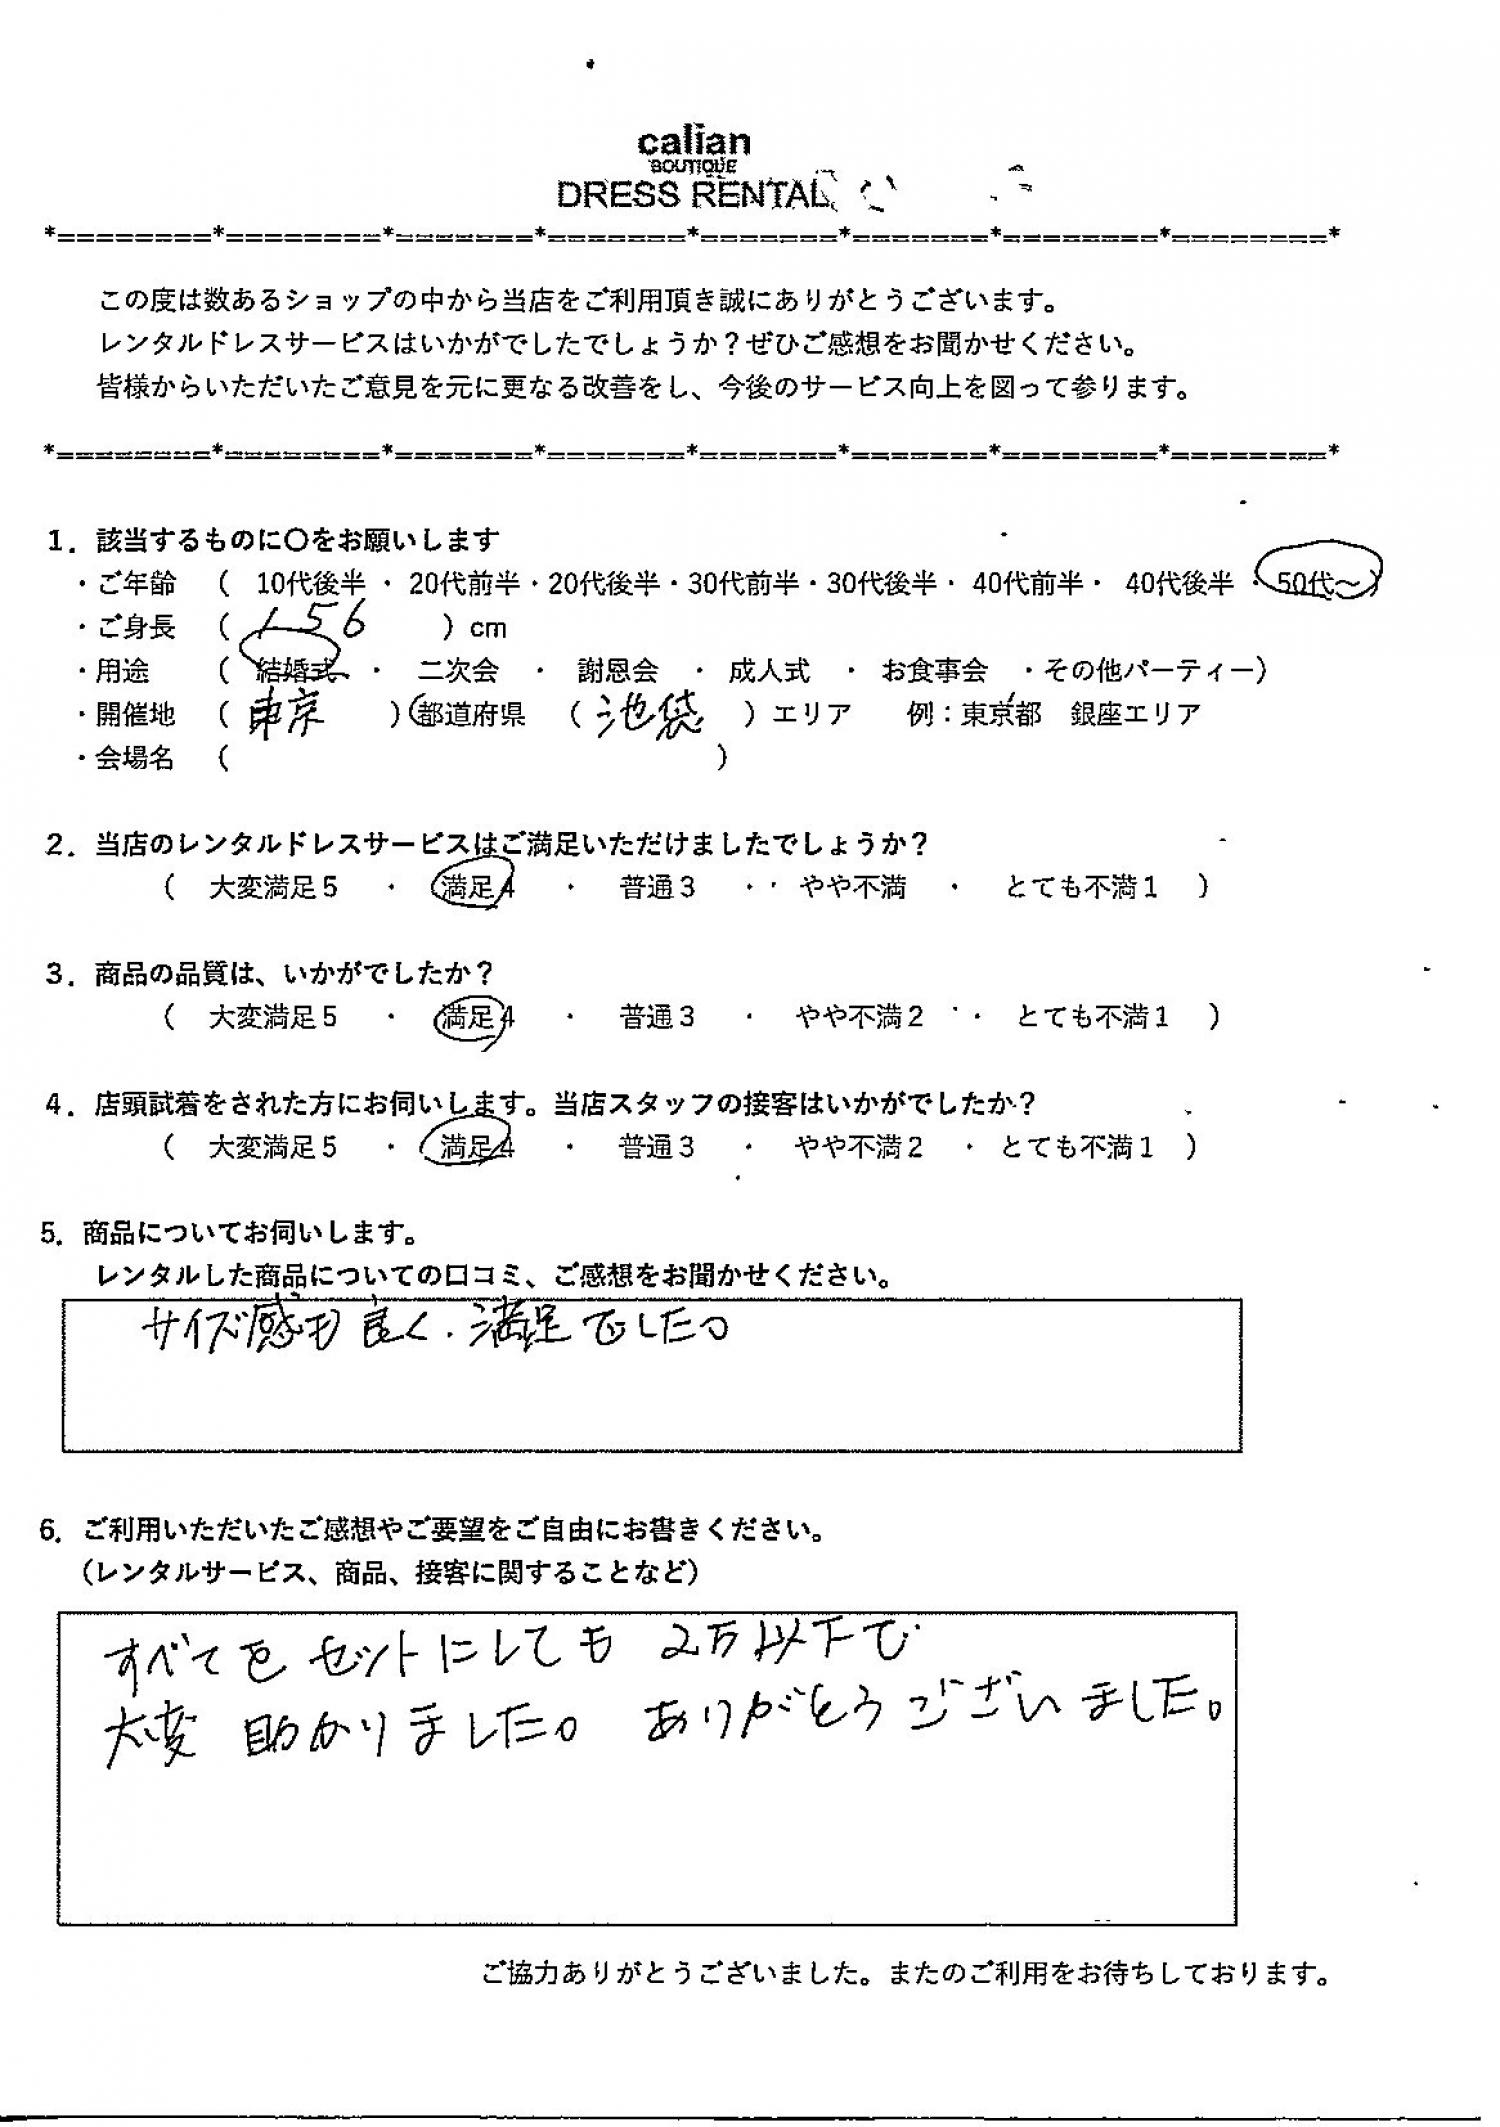 calian
BOUTIQUE
DRESS RENTAL
*========*========*=======*=======*=======*=======*========*========*
この度は数あるショップの中から当店をご利用頂き誠にありがとうございます。
レンタルドレスサービスはいかがでしたでしょうか？ぜひご感想をお聞かせください。
皆様からいただいたご意見を元に更なる改善をし、今後のサービス向上を図って参ります。
*========*========*=======*=======*=======*=======*========*========*
1．該当するものに〇をお願いします
・ご年齢 （ 10代後半 ・ 20代前半・20代後半・30代前半・30代後半・ 40代前半・ 40代後半 ・ 50代～）
・ご身長 （ 156 ）cm
・用途 （ 結婚式 ・ 二次会 ・ 謝恩会 ・ 成人式 ・ お食事会 ・その他パーティー）
・開催地 （ 東京 ）都道府県 （ 池袋 ）エリア 例：東京都 銀座エリア
・会場名 （ ）
2．当店のレンタルドレスサービスはご満足いただけましたでしょうか？
（ 大変満足５ ・ 満足４ ・ 普通３ ・ やや不満 ・ とても不満１ ）
3．商品の品質は、いかがでしたか？
（ 大変満足５ ・ 満足４ ・ 普通３ ・ やや不満２ ・ とても不満１ ）
4．店頭試着をされた方にお伺いします。当店スタッフの接客はいかがでしたか？
（ 大変満足５ ・ 満足４ ・ 普通３ ・ やや不満２ ・ とても不満１ ）
5．商品についてお伺いします。
レンタルした商品についての口コミ、ご感想をお聞かせください。
サイズ感も良く、満足でした。
6．ご利用いただいたご感想やご要望をご自由にお書きください。
（レンタルサービス、商品、接客に関することなど）
すべてをセットにしても 2万以下で
大変 助かりました。 ありがとうございました。
ご協力ありがとうございました。またのご利用をお待ちしております。